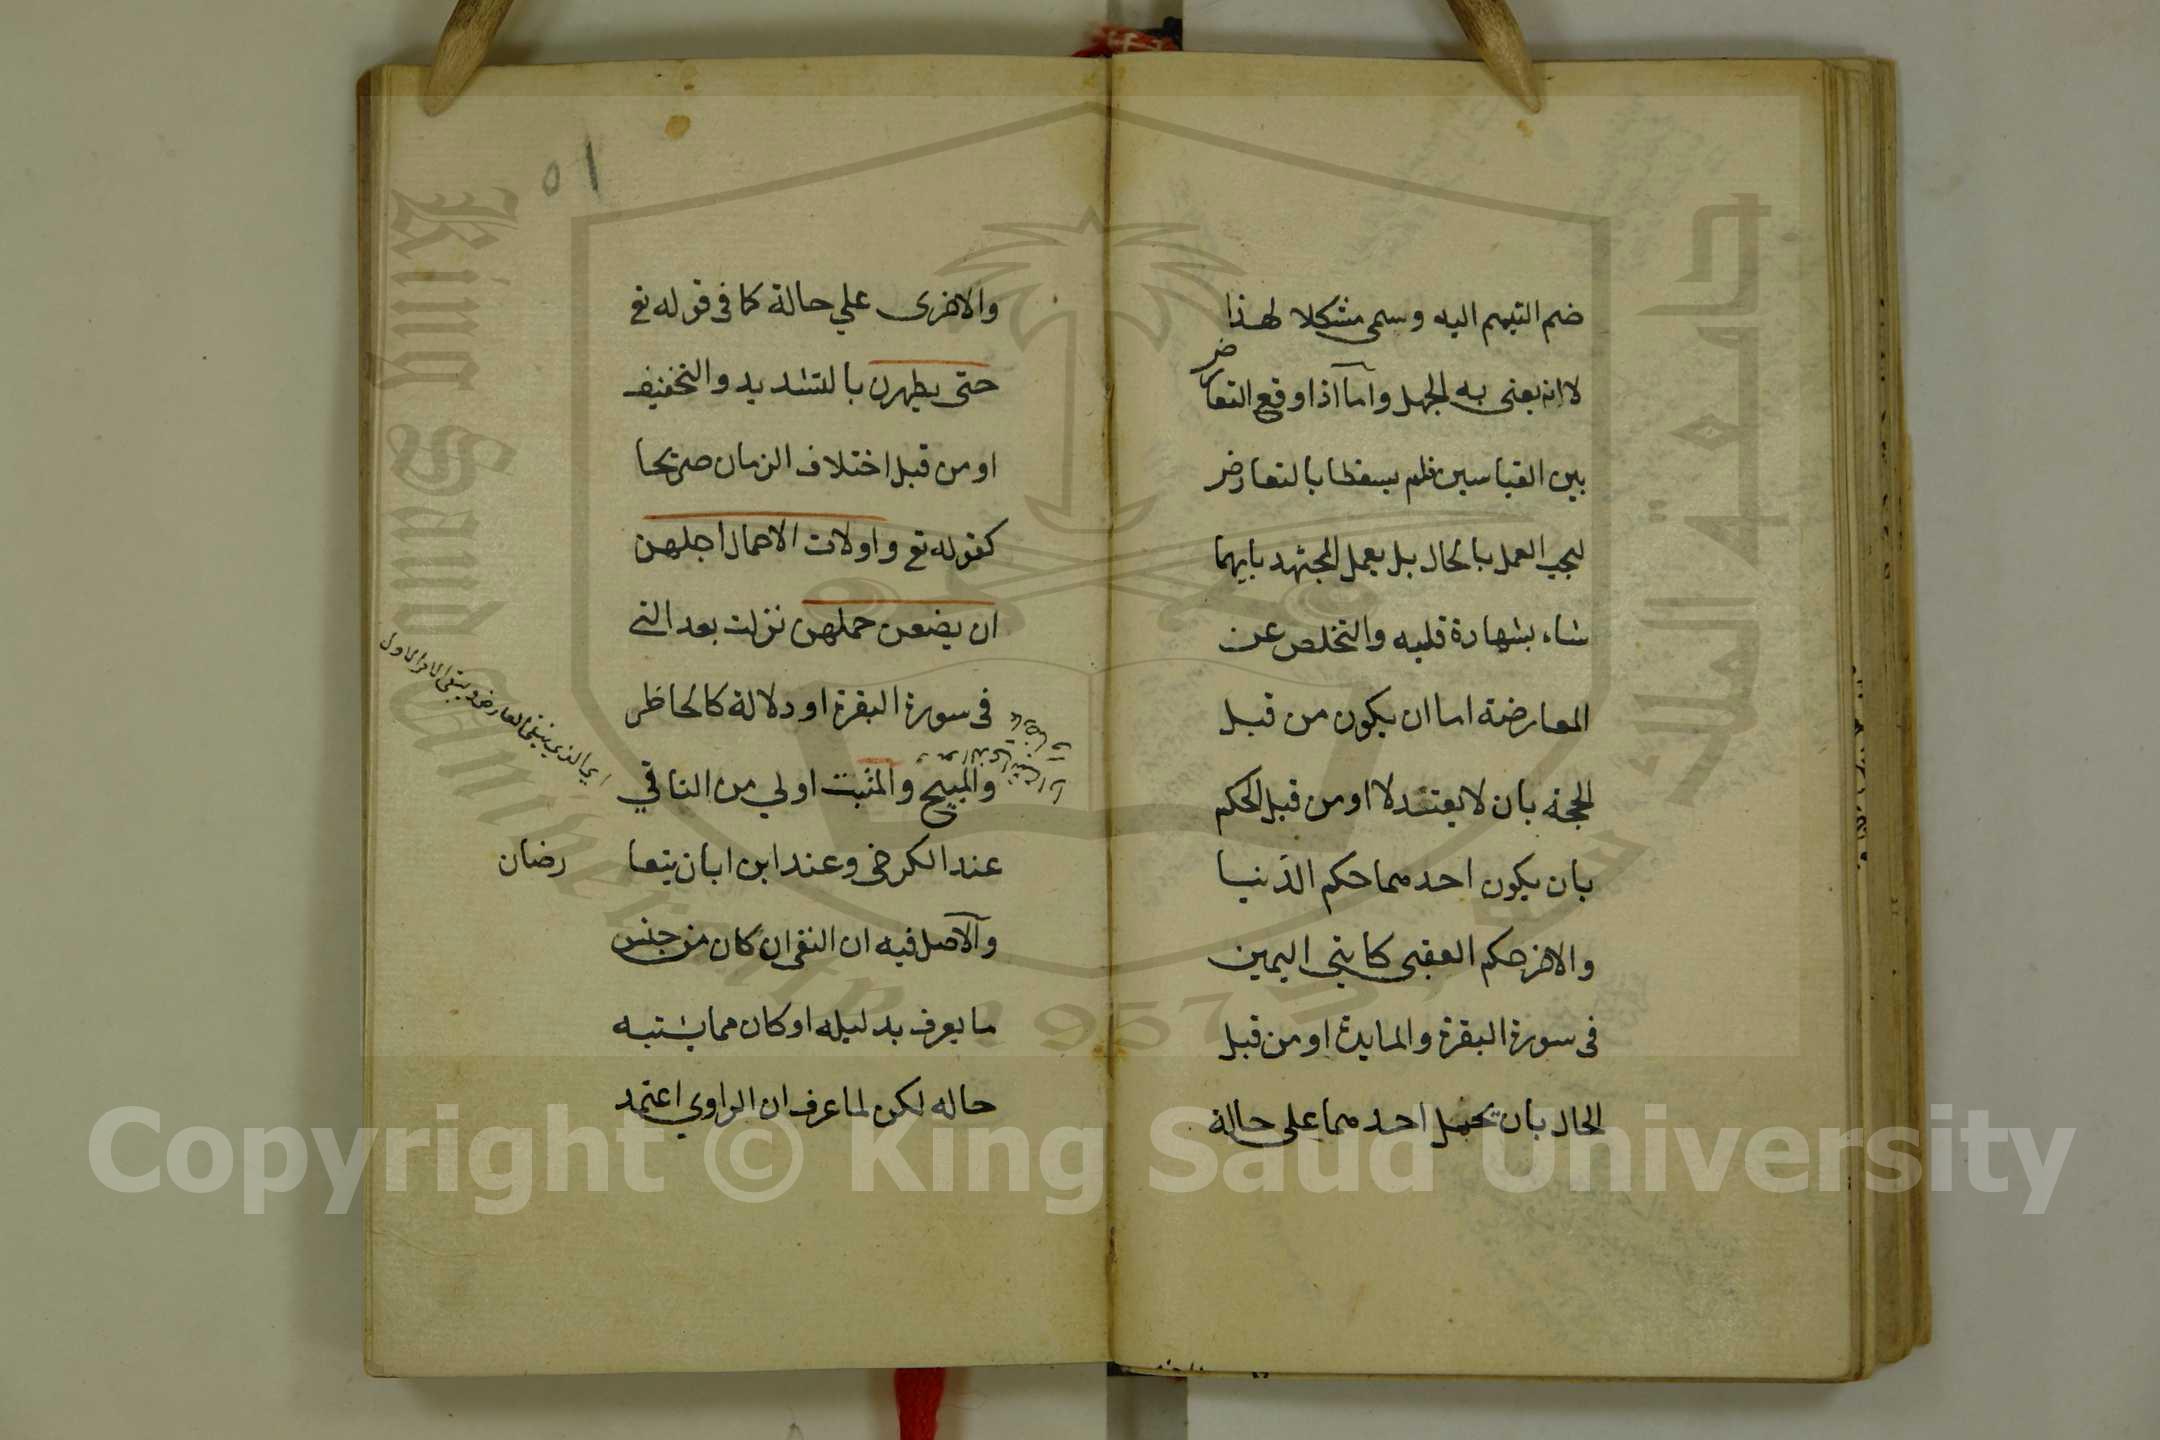 ضم التيمم اليه وسمى مشكلا لهذا
لا انه يعنى به الجهل واما اذا وقع التعارض
بين القياسين فلم يسقطا بالتعارض
ليجب العمل بالحال بل يعمل المجتهد بايهما
شاء بشهادة قلبه والتخلص عن
المعارضة اما ان يكون من قبل
الحجة بان لا يعتدلا او من قبل الحكم
بان يكون احدهما حكم الدنيا
والاخر حكم العقبى كايتي اليمين
في سورة البقرة والمايدة او من قبل
الحال بان يحمل احدهما على حالة
٥١
والاخرى علي حالة كما في قوله تع
حتى يطهرن بالتشديد والتخفيف
او من قبل اختلاف الزمان صريحا
كقوله تع واولات الاحمال اجلهن
ان يضعن حملهن نزلت بعد التي
في سورة البقرة او دلالة كالحاظر
والمبيح والمثبت اولي من النافي
عند الكرخي وعند ابن ابان يتعا رضان
والاصل فيه ان النفي ان كان من جنس
ما يعرف بدليله او كان مما يشتبه
حاله لكن لما عرف ان الراوي اعتمد
اي الذي ينفي العارض ويبقي الامر الاول
King Saud University
جامعة الملك سعود
1957
Copyright © King Saud University